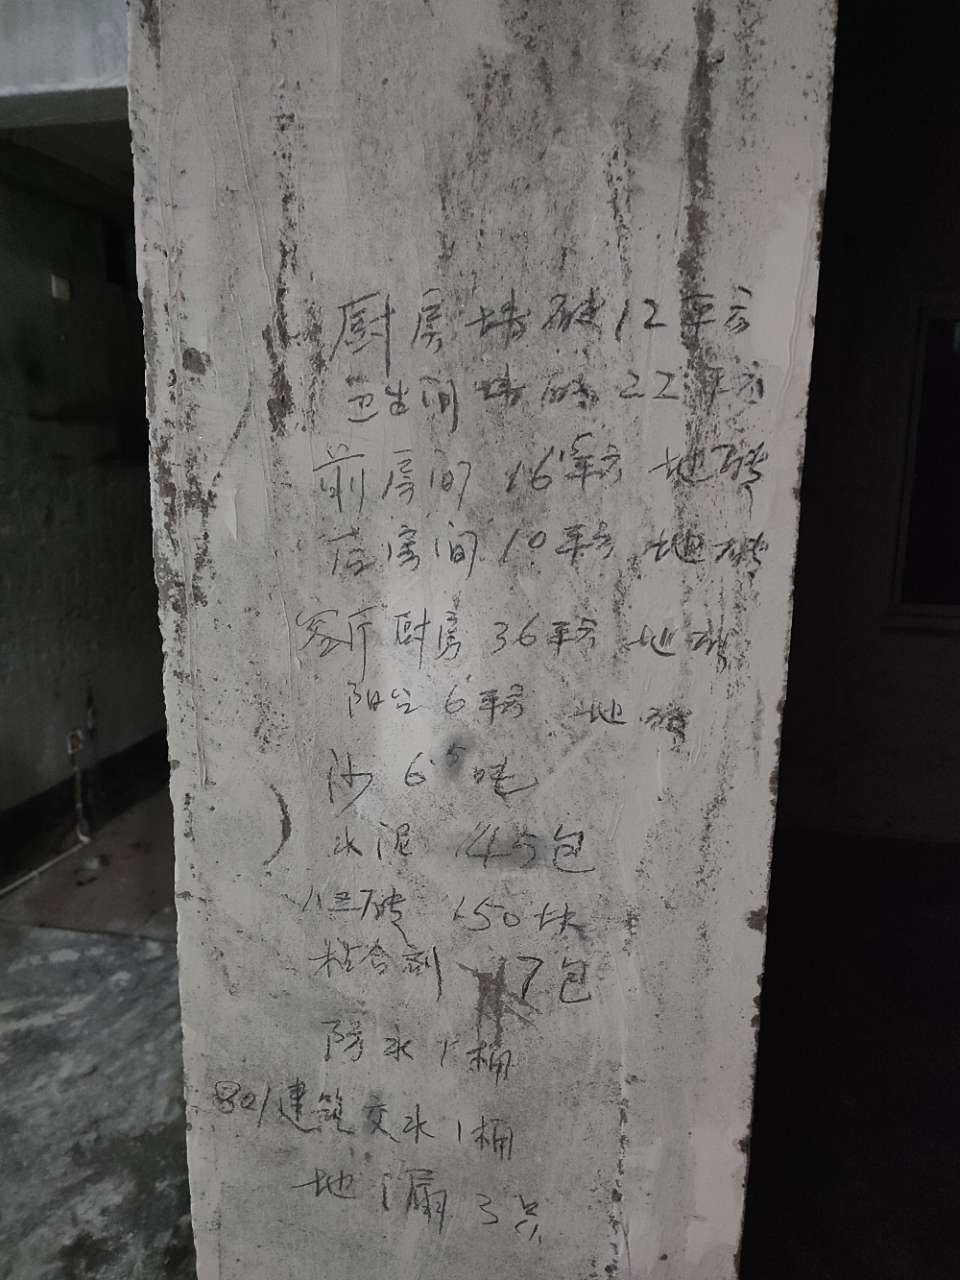 厨房墙砖12平方
卫生间墙砖22平方
前房间 16.5平方 地砖
后房间 10平方 地砖
客厅厨房 36平方 地砖
阳台 6平方 地砖
沙 6.5吨
水泥 45包
八五砖 150块
粘合剂 17包
防水 1桶
801建筑交水1桶
地漏 3只